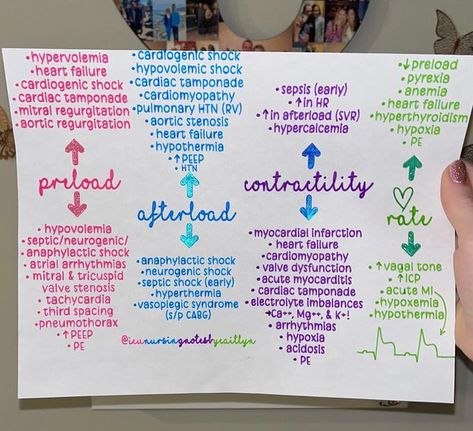 •hypervolemia
•heart failure
•cardiogenic shock
•cardiac tamponade
•mitral regurgitation
•aortic regurgitation
preload
•hypovolemia
•septic/neurogenic/
anaphylactic shock
•atrial arrhythmias
•mitral & tricuspid
valve stenosis
•tachycardia
•third spacing
•pneumothorax
•↑PEEP
•PE
•cardiogenic shock
•hypovolemic shock
•cardiac tamponade
•cardiomyopathy
•pulmonary HTN (RV)
•aortic stenosis
•heart failure
•hypothermia
•↑PEEP
•HTN
afterload
•anaphylactic shock
•neurogenic shock
•septic shock (early)
•hyperthermia
•vasoplegic syndrome
(s/p CABG)
@icunursingnotesbycaitlyn
•sepsis (early)
•↑in HR
•↑in afterload (SVR)
•hypercalcemia
contractility
•myocardial infarction
•heart failure
•cardiomyopathy
•valve dysfunction
•acute myocarditis
•cardiac tamponade
•electrolyte imbalances
→Ca++, Mg++, & K+!
•arrhythmias
•hypoxia
•acidosis
•PE
•↓preload
•pyrexia
•anemia
•heart failure
•hyperthyroidism
•hypoxia
•PE
rate
•↑vagal tone
•↑ICP
•acute MI
•hypoxemia
•hypothermia